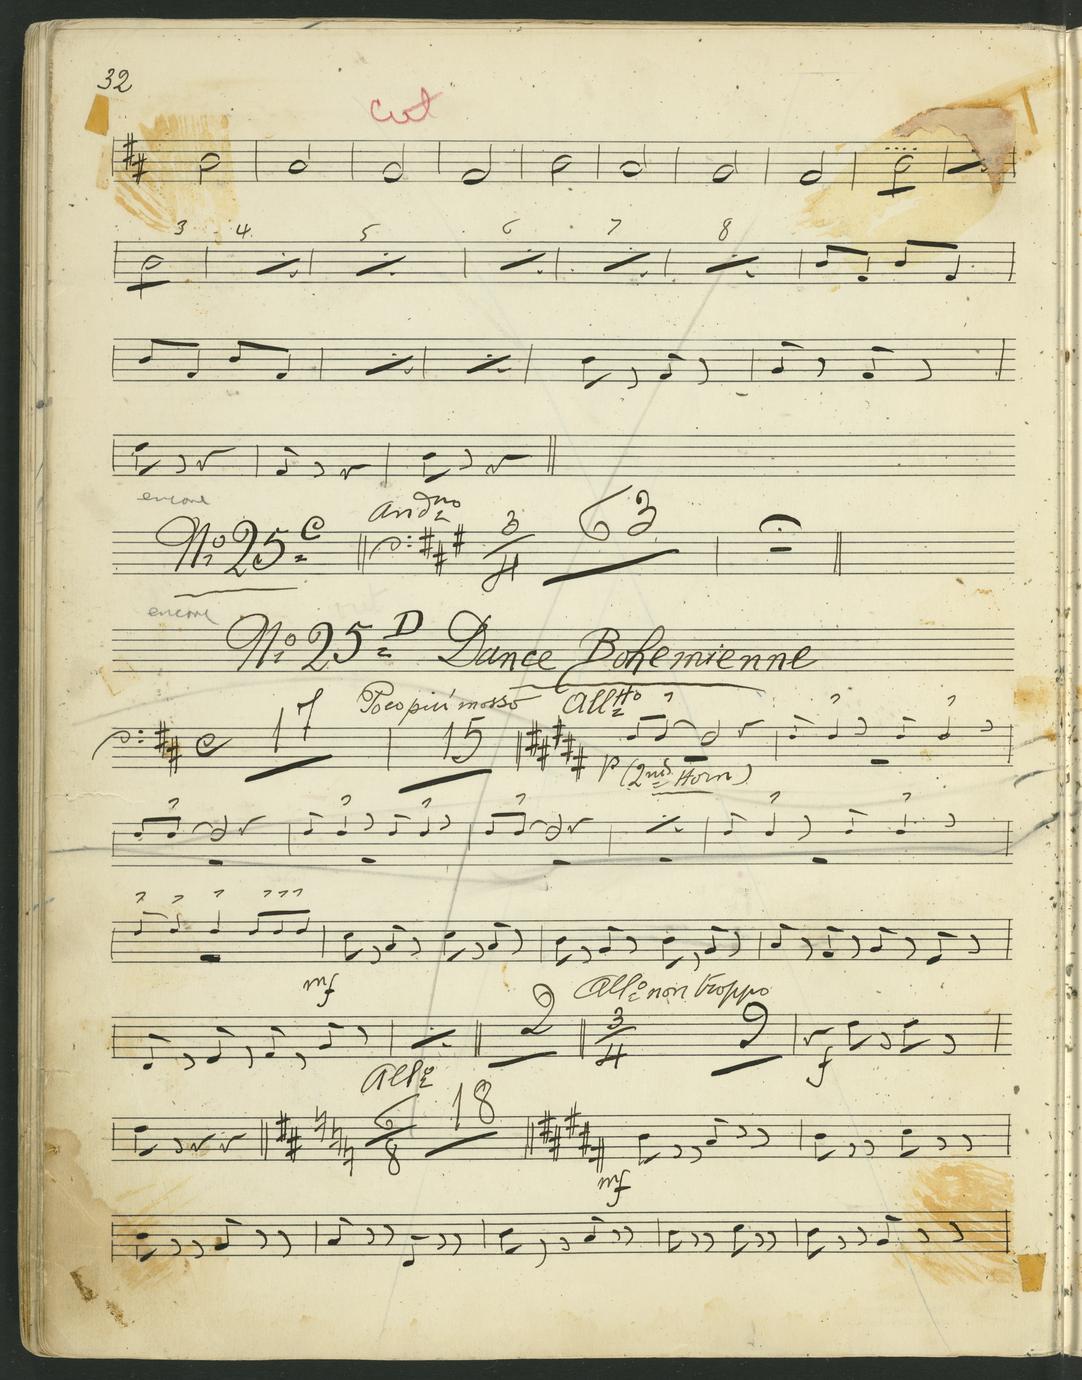 32
cut
3 4 5 6 7 8
encore
And.no
No. 25.C 3/4 63
encore
No. 25.D Dance Bohemienne
Poco più mosso All.tto
C 17 15
P (2nd Horn)
mf
All.o non troppo
2 3/4 9
f
All.o
6/8 18
mf